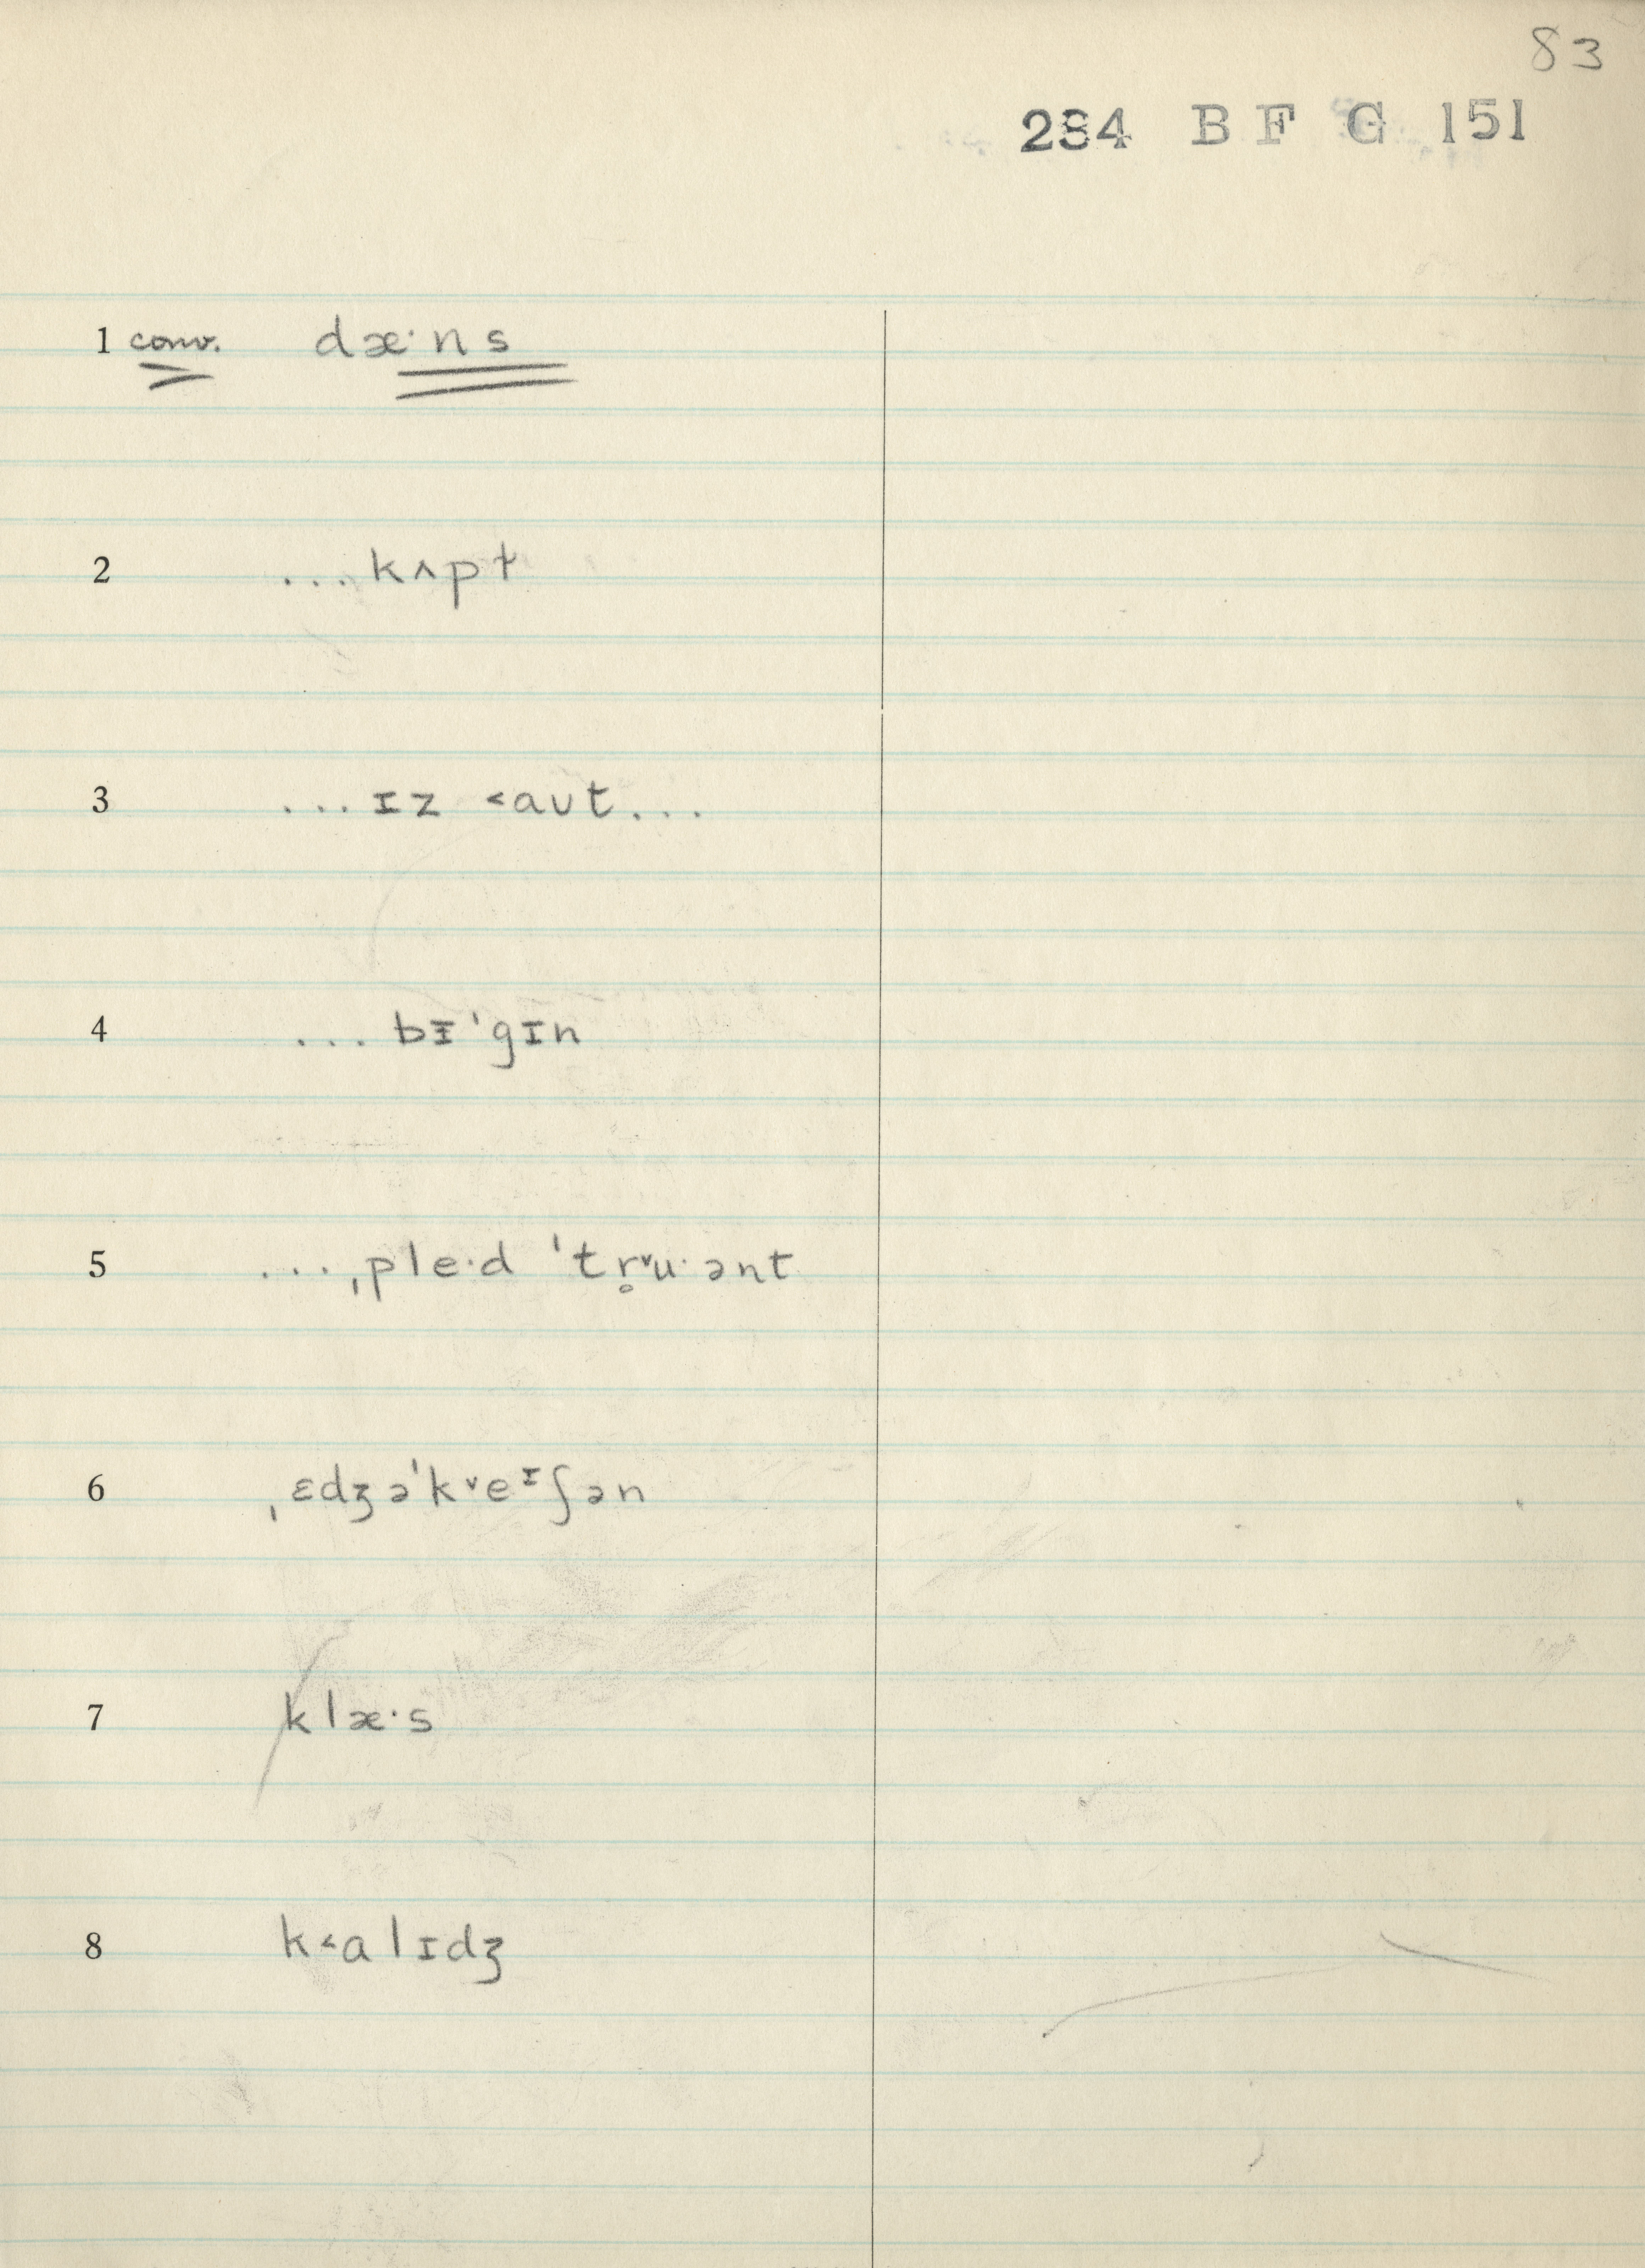 83
284 B F G 151
1 conv. dæ·ns
2 ...kʌpt
3 ...ɪz ˂aʊt...
4 ...bɪ̵ˈgɪn
5 ...ˌple·d ˈtr̥ᵛu·ənt
6 ˌɛdʒəˈk˅eᶦʃən
7 klæ·s
8 k˂alɪdʒ